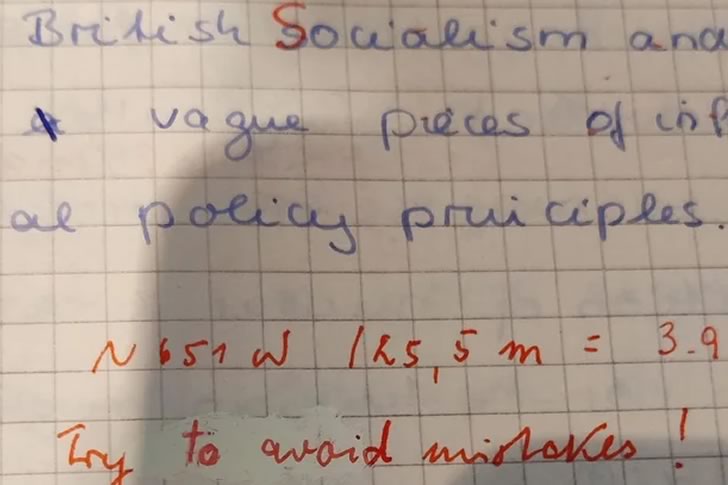 British Socialism and
vague pieces of inf
al policy principles.
N 651 W 125,5 m = 3.9
Try to avoid mistakes!